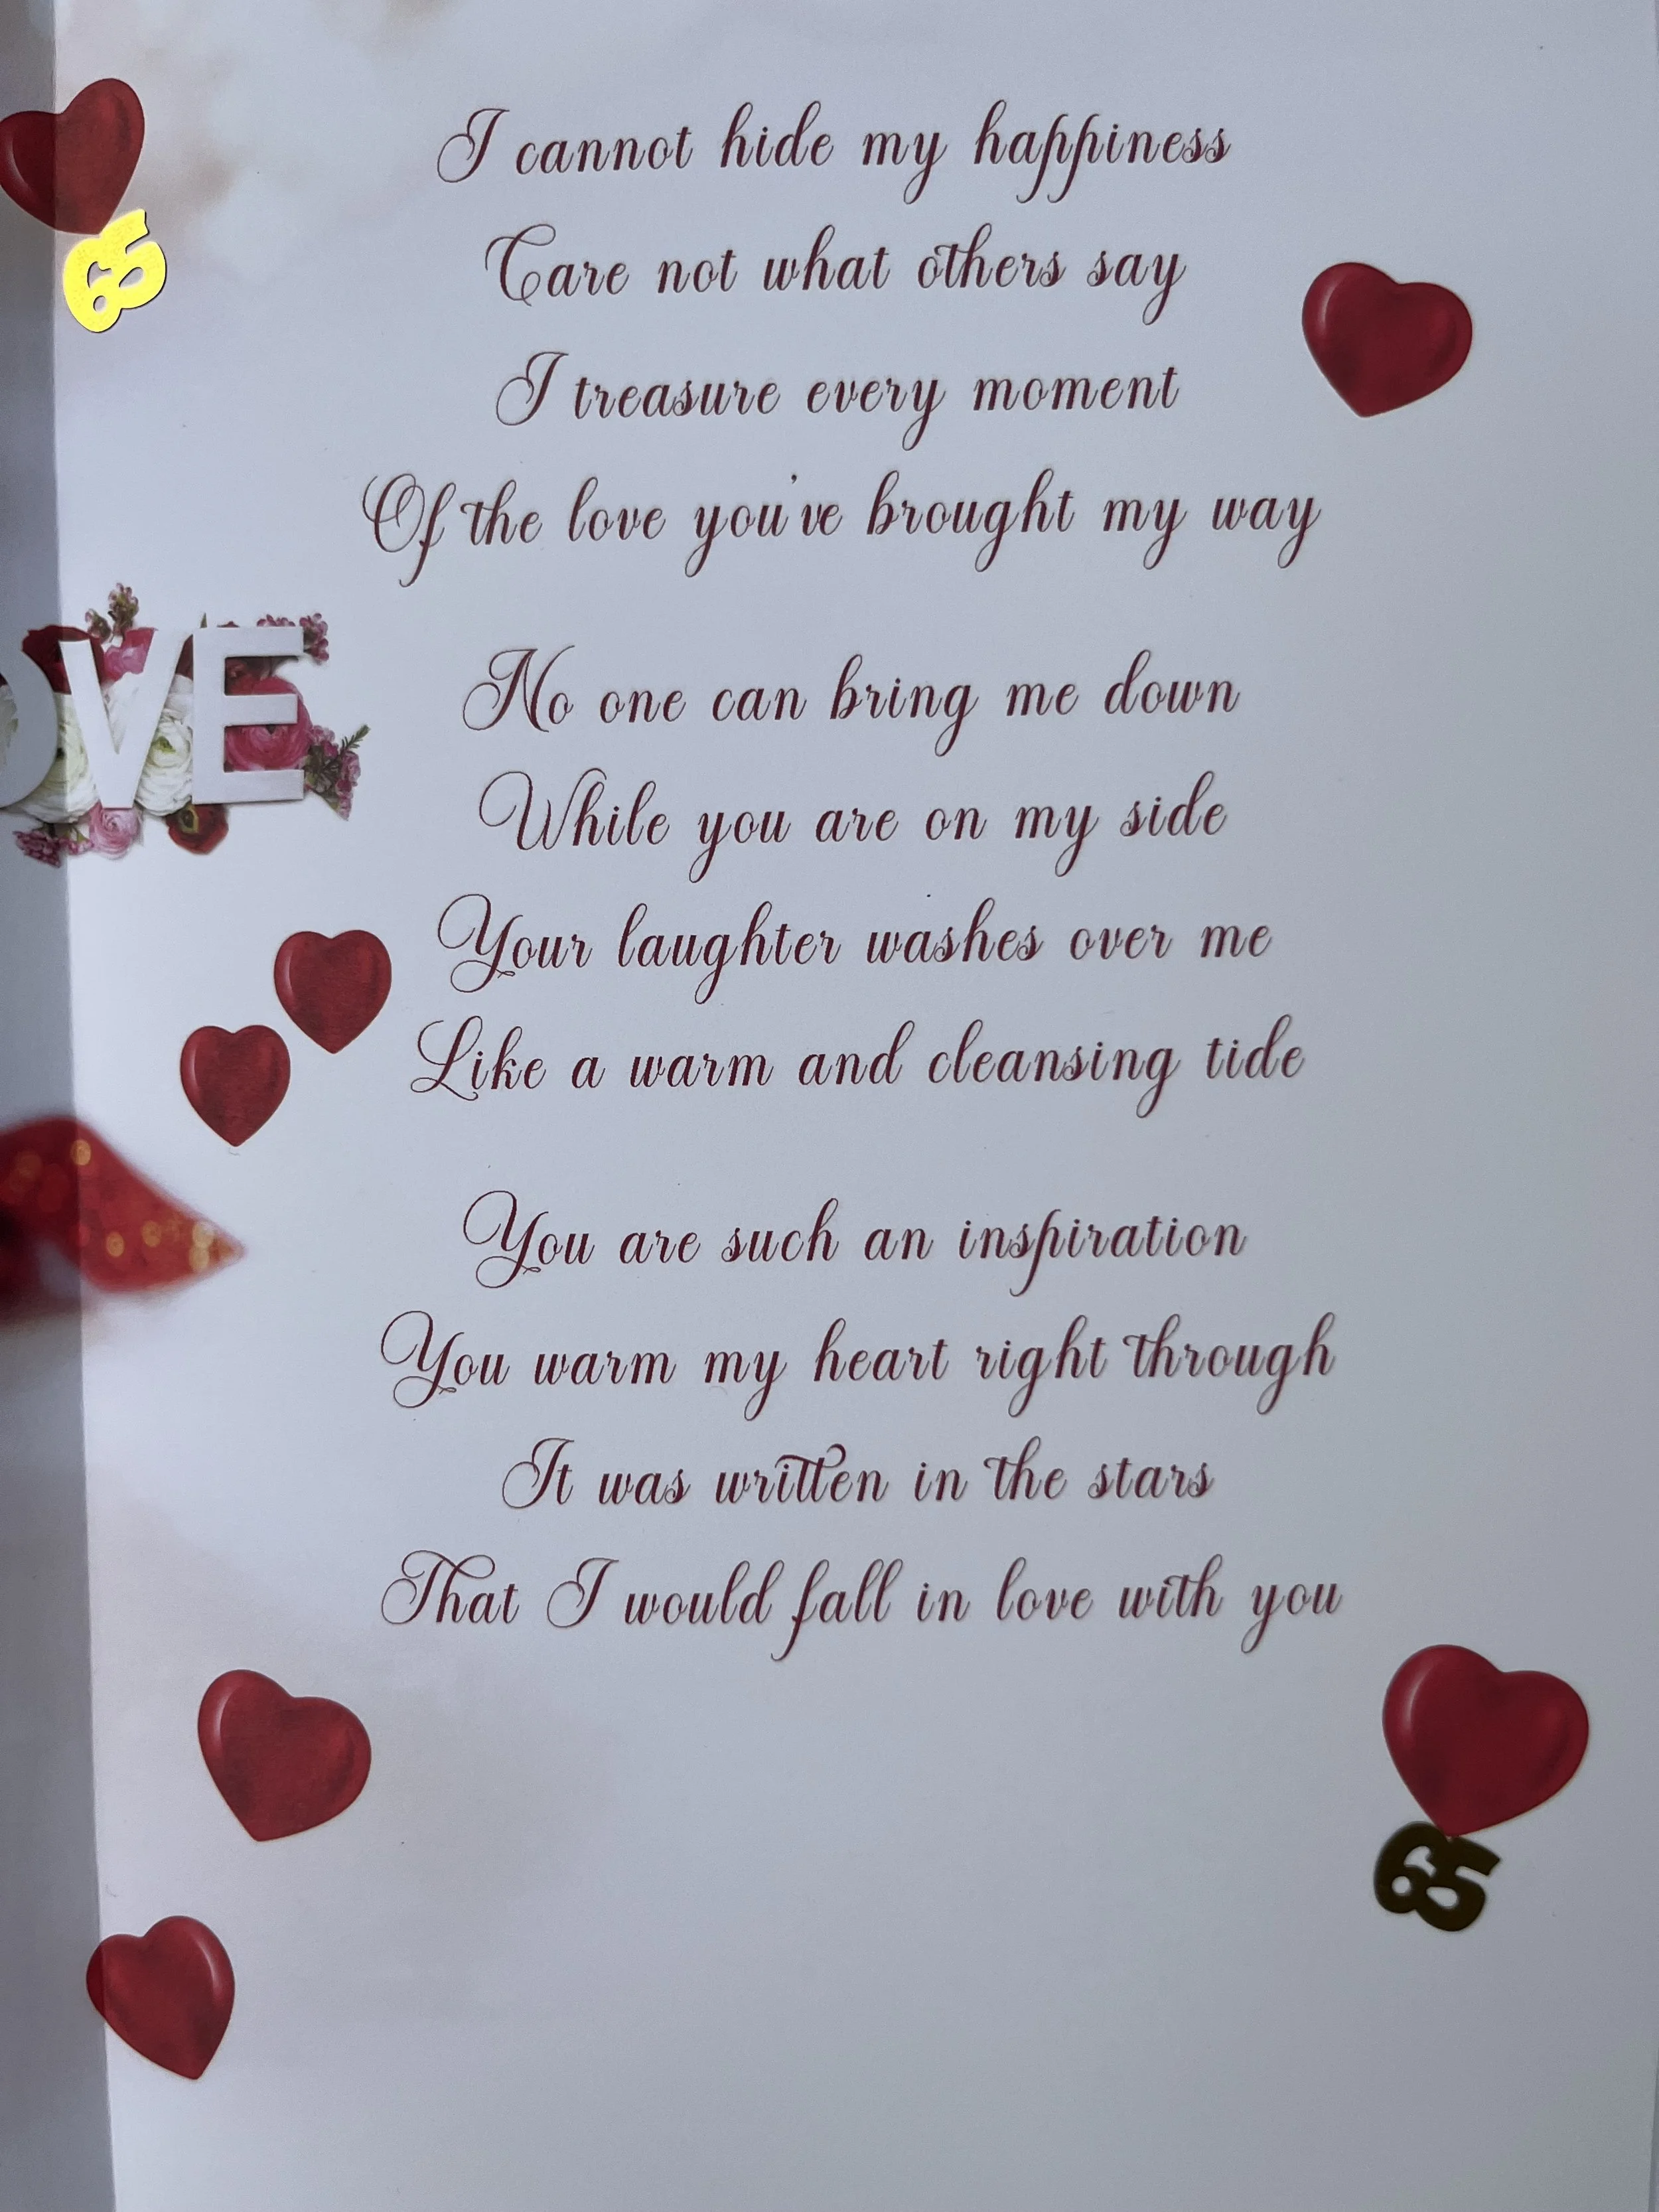 I cannot hide my happiness
Care not what others say
I treasure every moment
Of the love you've brought my way
No one can bring me down
While you are on my side
Your laughter washes over me
Like a warm and cleansing tide
You are such an inspiration
You warm my heart right through
It was written in the stars
That I would fall in love with you
65
OVE
65